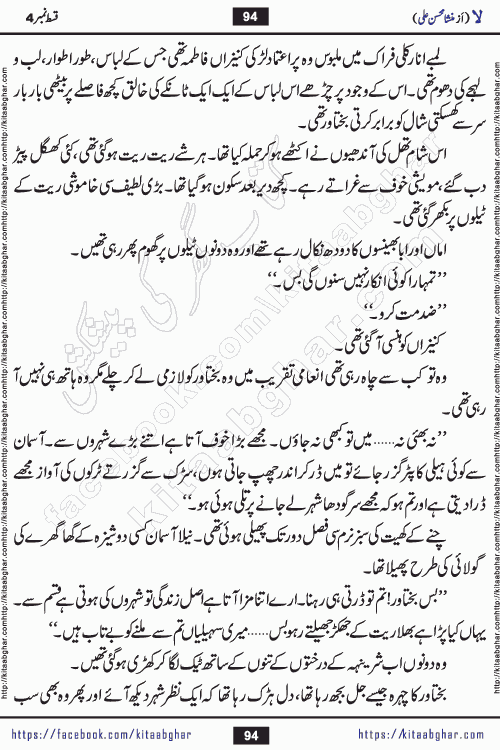 لا (از منشا محسن علی) 94 قسط نمبر 4
لمبے انارکلی فراک میں ملبوس وہ پر اعتماد لڑکی کنیزاں فاطمہ تھی جس کے لباس، طور اطوار، لب و
لہجے کی دھوم تھی۔ اس کے وجود پر چڑھے اس لباس کے ایک ایک ٹانکے کی خالق کچھ فاصلے پر بیٹھی بار بار
سر سے کھسکتی شال کو برابر کرتی بختاور تھی۔
اس شام تھل کی آندھیوں نے اکٹھے ہو کر حملہ کیا تھا۔ ہر شے ریت ریت ہو گئی تھی، کئی کھگل پیڑ
دب گئے، مویشی خوف سے غراتے رہے۔ کچھ دیر بعد سکون ہو گیا تھا۔ بڑی لطیف سی خاموشی ریت کے
ٹیلوں پر بکھر گئی تھی۔
اماں اور ابا بھینسوں کا دودھ نکال رہے تھے اور وہ دونوں ٹیلوں پر گھوم پھر رہی تھیں۔
”تمہارا کوئی انکار نہیں سنوں گی بس۔“
”ضد مت کرو۔“
کنیزاں کو ہنسی آ گئی تھی۔
وہ تو کب سے چاہ رہی تھی انعامی تقریب میں وہ بختاور کو لازمی لے کر چلے مگر وہ ہاتھ ہی نہیں آ
رہی تھی۔
”نہ بھئی نہ...... میں تو کبھی نہ جاؤں۔ مجھے بڑا خوف آتا ہے اتنے بڑے شہروں سے۔ آسمان
سے کوئی ہیلی کاپٹر گزر جائے تو میں ڈر کر اندر چھپ جاتی ہوں، سڑک سے گزرتے ٹرکوں کی آواز مجھے
ڈرا دیتی ہے اور تم ہو کہ مجھے سرگودھا شہر لے جانے پر تلی ہوئی ہو۔“
چنے کے کھیت کی سبز نرم سی فصل دور تک پھیلی ہوئی تھی۔ نیلا آسمان کسی دوشیزہ کے گھاگھرے کی
گولائی کی طرح پھیلا تھا۔
”بس بختاور! تم تو ڈرتی ہی رہنا۔ ارے اتنا مزا آتا ہے اصل زندگی تو شہروں کی ہوتی ہے قسم سے۔
یہاں کیا پڑا ہے بھلا ریت کے جھکڑ جھیلتے رہو بس...... میری سہیلیاں تم سے ملنے کو بے تاب ہیں۔“
وہ دونوں اب شرینہہ کے درختوں کے تنوں کے ساتھ ٹیک لگا کر کھڑی ہو گئی تھیں۔
بختاور کا چہرہ جیسے جل بجھ رہا تھا، دل ہڑک رہا تھا کہ ایک نظر شہر دیکھ آئے اور پھر وہ بھی سب
https://facebook.com/kitaabghar 94 https://kitaabghar.com
کتاب گھر کی پیشکش
kitaabghar.com
facebook.com/kitaabghar
http://kitaabghar.com